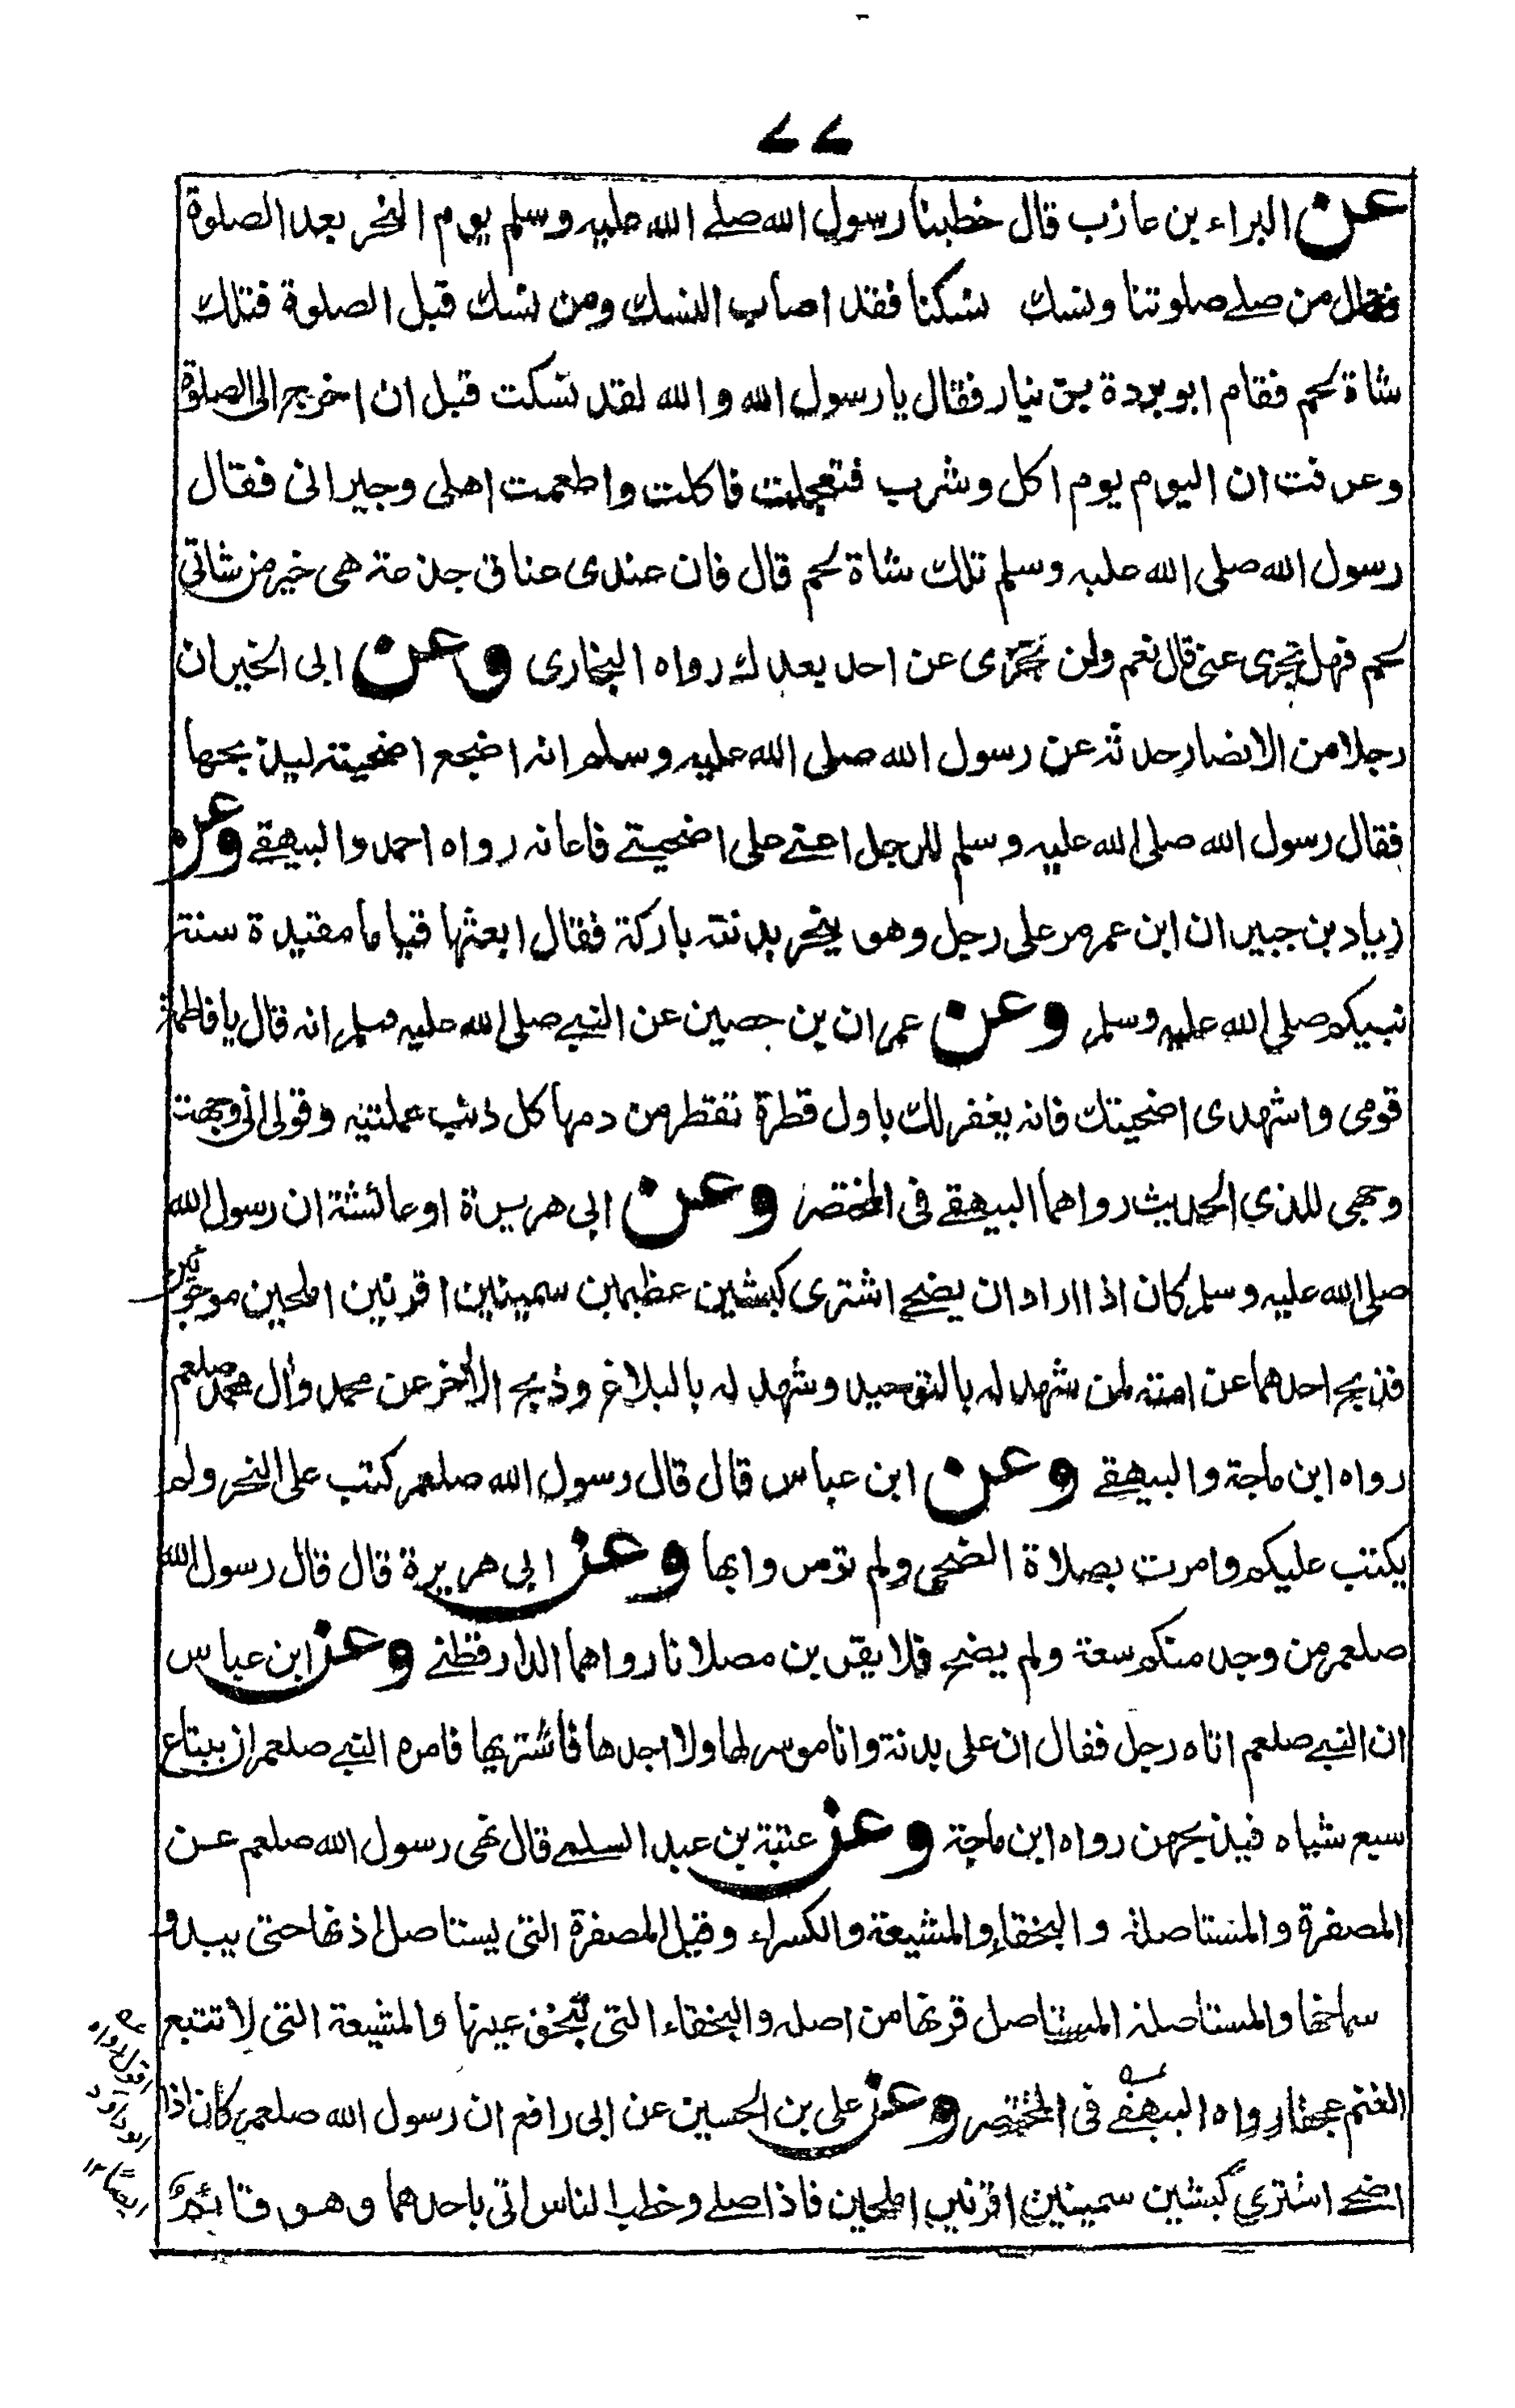 ۷۷
عن البراء بن عازب قال خطبنا رسول الله صلے الله عليه وسلم يوم النحر بعد الصلوة
فقال من صلے صلوتنا ونسك نسكنا فقد اصاب النسك ومن نسك قبل الصلوة فتلك
شاة لحم فقام ابو بردة بن نيار فقال يا رسول الله والله لقد نسكت قبل ان اخرج الى الصلوة
وعرفت ان اليوم يوم اكل وشرب فتعجلت فاكلت واطعمت اهلى وجيرانى فقال
رسول الله صلى الله عليه وسلم تلك شاة لحم قال فان عندى عناق جذعة هى خير من شاتى
لحم فهل تجزى عنى قال نعم ولن تجزى عن احد بعدك رواه البخارى وعن ابى الخير ان
رجلا من الانصار حدثه عن رسول الله صلى الله عليه وسلم انه اضجع اضحيته ليذبحها
فقال رسول الله صلى الله عليه وسلم للرجل اعنے على اضحيتے فاعانه رواه احمد والبيهقے وعن
زياد بن جبير ان ابن عمر مر على رجل وهو ينحر بدنته باركة فقال ابعثها قياما مقيدة سنة
نبيكم صلى الله عليه وسلم وعن عمران بن حصين عن النبے صلى الله عليه وسلم انه قال يا فاطمة
قومى واشهدى اضحيتك فانه يغفر لك باول قطرة تقطر من دمها كل ذنب عملتيه وقولى انى وجهت
وجهى للذي الحديث رواهما البيهقے فى المختصر وعن ابى هريرة او عائشة ان رسول الله
صلى الله عليه وسلم كان اذا اراد ان يضحے اشترى كبشين عظيمين سمينين اقرنين املحين موجوئين
فذبح احدهما عن امته لمن شهد له بالتوحيد وشهد له بالبلاغ وذبح الاخر عن محمد وال محمد صلعم
رواه ابن ماجة والبيهقے وعن ابن عباس قال قال رسول الله صلعم كتب على النحر ولم
يكتب عليكم وامرت بصلاة الضحى ولم تؤمروا بها وعن ابى هريرة قال قال رسول الله
صلعم من وجد منكم سعة ولم يضح فلا يقربن مصلانا رواهما الدارقطنے وعن ابن عباس
ان النبے صلعم اتاه رجل فقال ان على بدنة وانا موسر لها ولا اجدها فاشتريها فامره النبے صلعم ان يبتاع
سبع شياه فيذبحهن رواه ابن ماجة وعن عتبة بن عبد السلمے قال نهى رسول الله صلعم عن
المصفرة والمستاصلة والبخقاء والمشيعة والكسراء وقيل المصفرة التى يستاصل اذنها حتى يبدو
سماخها والمستاصلة المستاصل قرنها من اصله والبخقاء التى تبخق عينها والمشيعة التى لا تتبع
الغنم عجفا رواه البيهقے فى المختصر وعن على بن الحسين عن ابى رافع ان رسول الله صلعم كان اذا
اضحے اشترى كبشين سمينين اقرنين املحين فاذا صلے وخطب الناس اتى باحدهما وهو قائم
اقول رواه
ابو داود
ايضا ۱۲